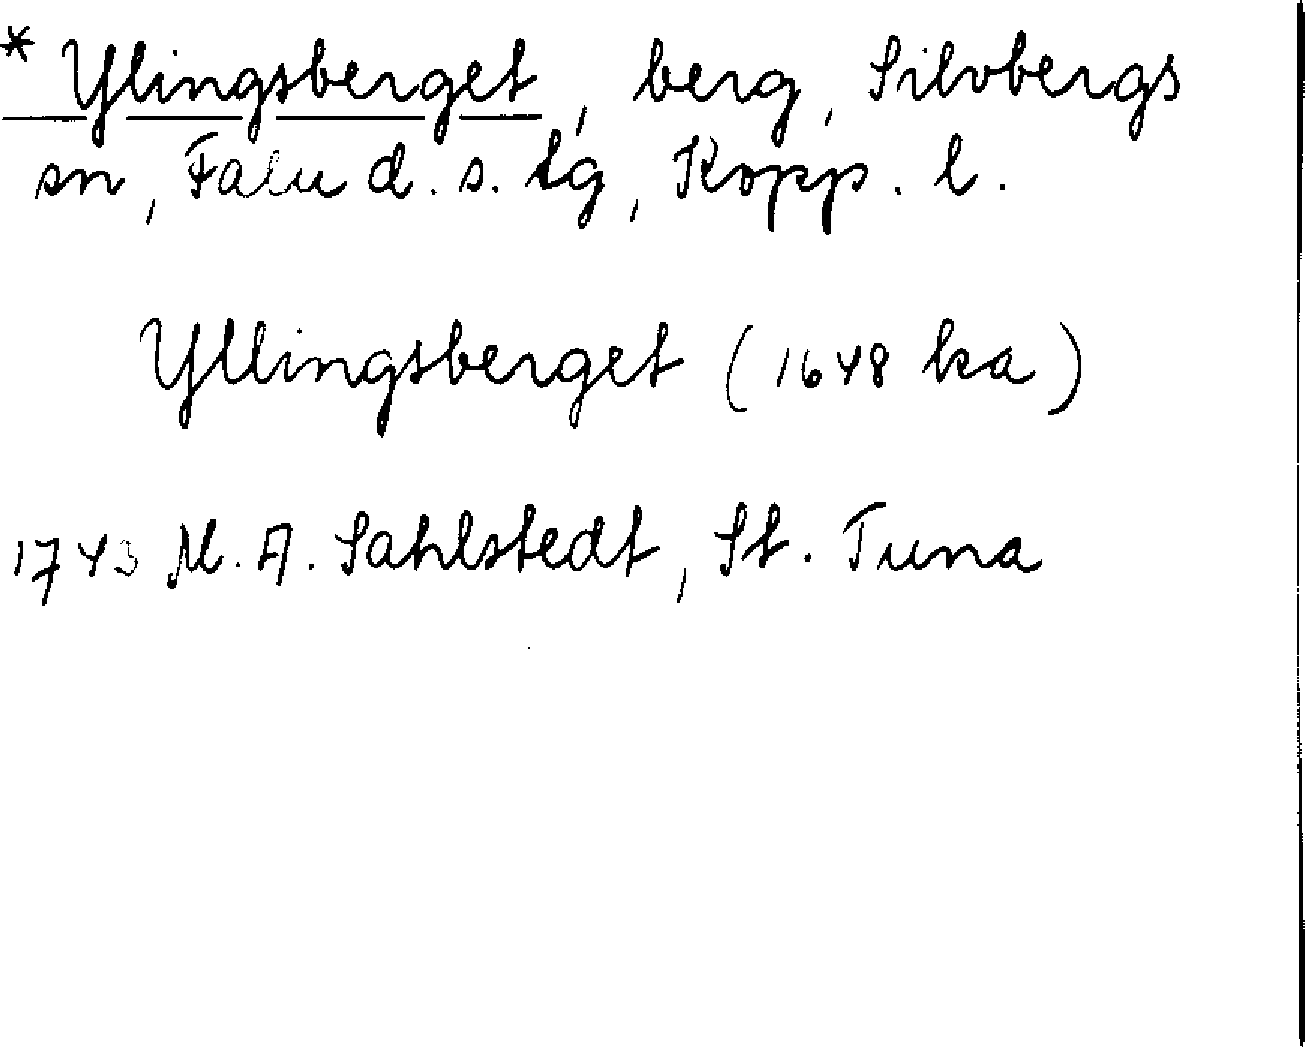 * Ylingsberget, berg, Silvbergs
sn, Falu d. s. tg, Kopp. l.
Yllingsberget (1648 ka)
1743 M. A. Sahlstedt, St. Tuna